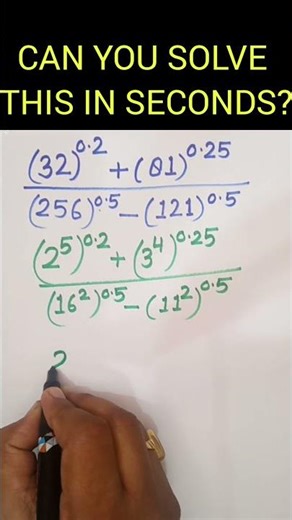 CAN YOU SOLVE
THIS IN SECONDS?
(32)^0.2 + (81)^0.25
(256)^0.5 - (121)^0.5
(2^5)^0.2 + (3^4)^0.25
(16^2)^0.5 - (11^2)^0.5
2